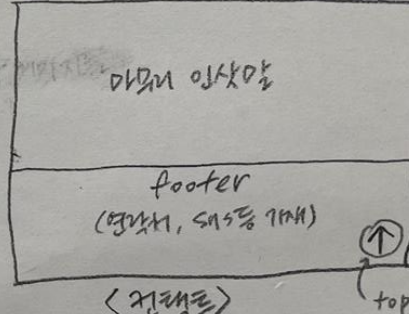 마무리 인삿말
footer
(연락처, SNS등 기재)
↑
<컨택트>
top